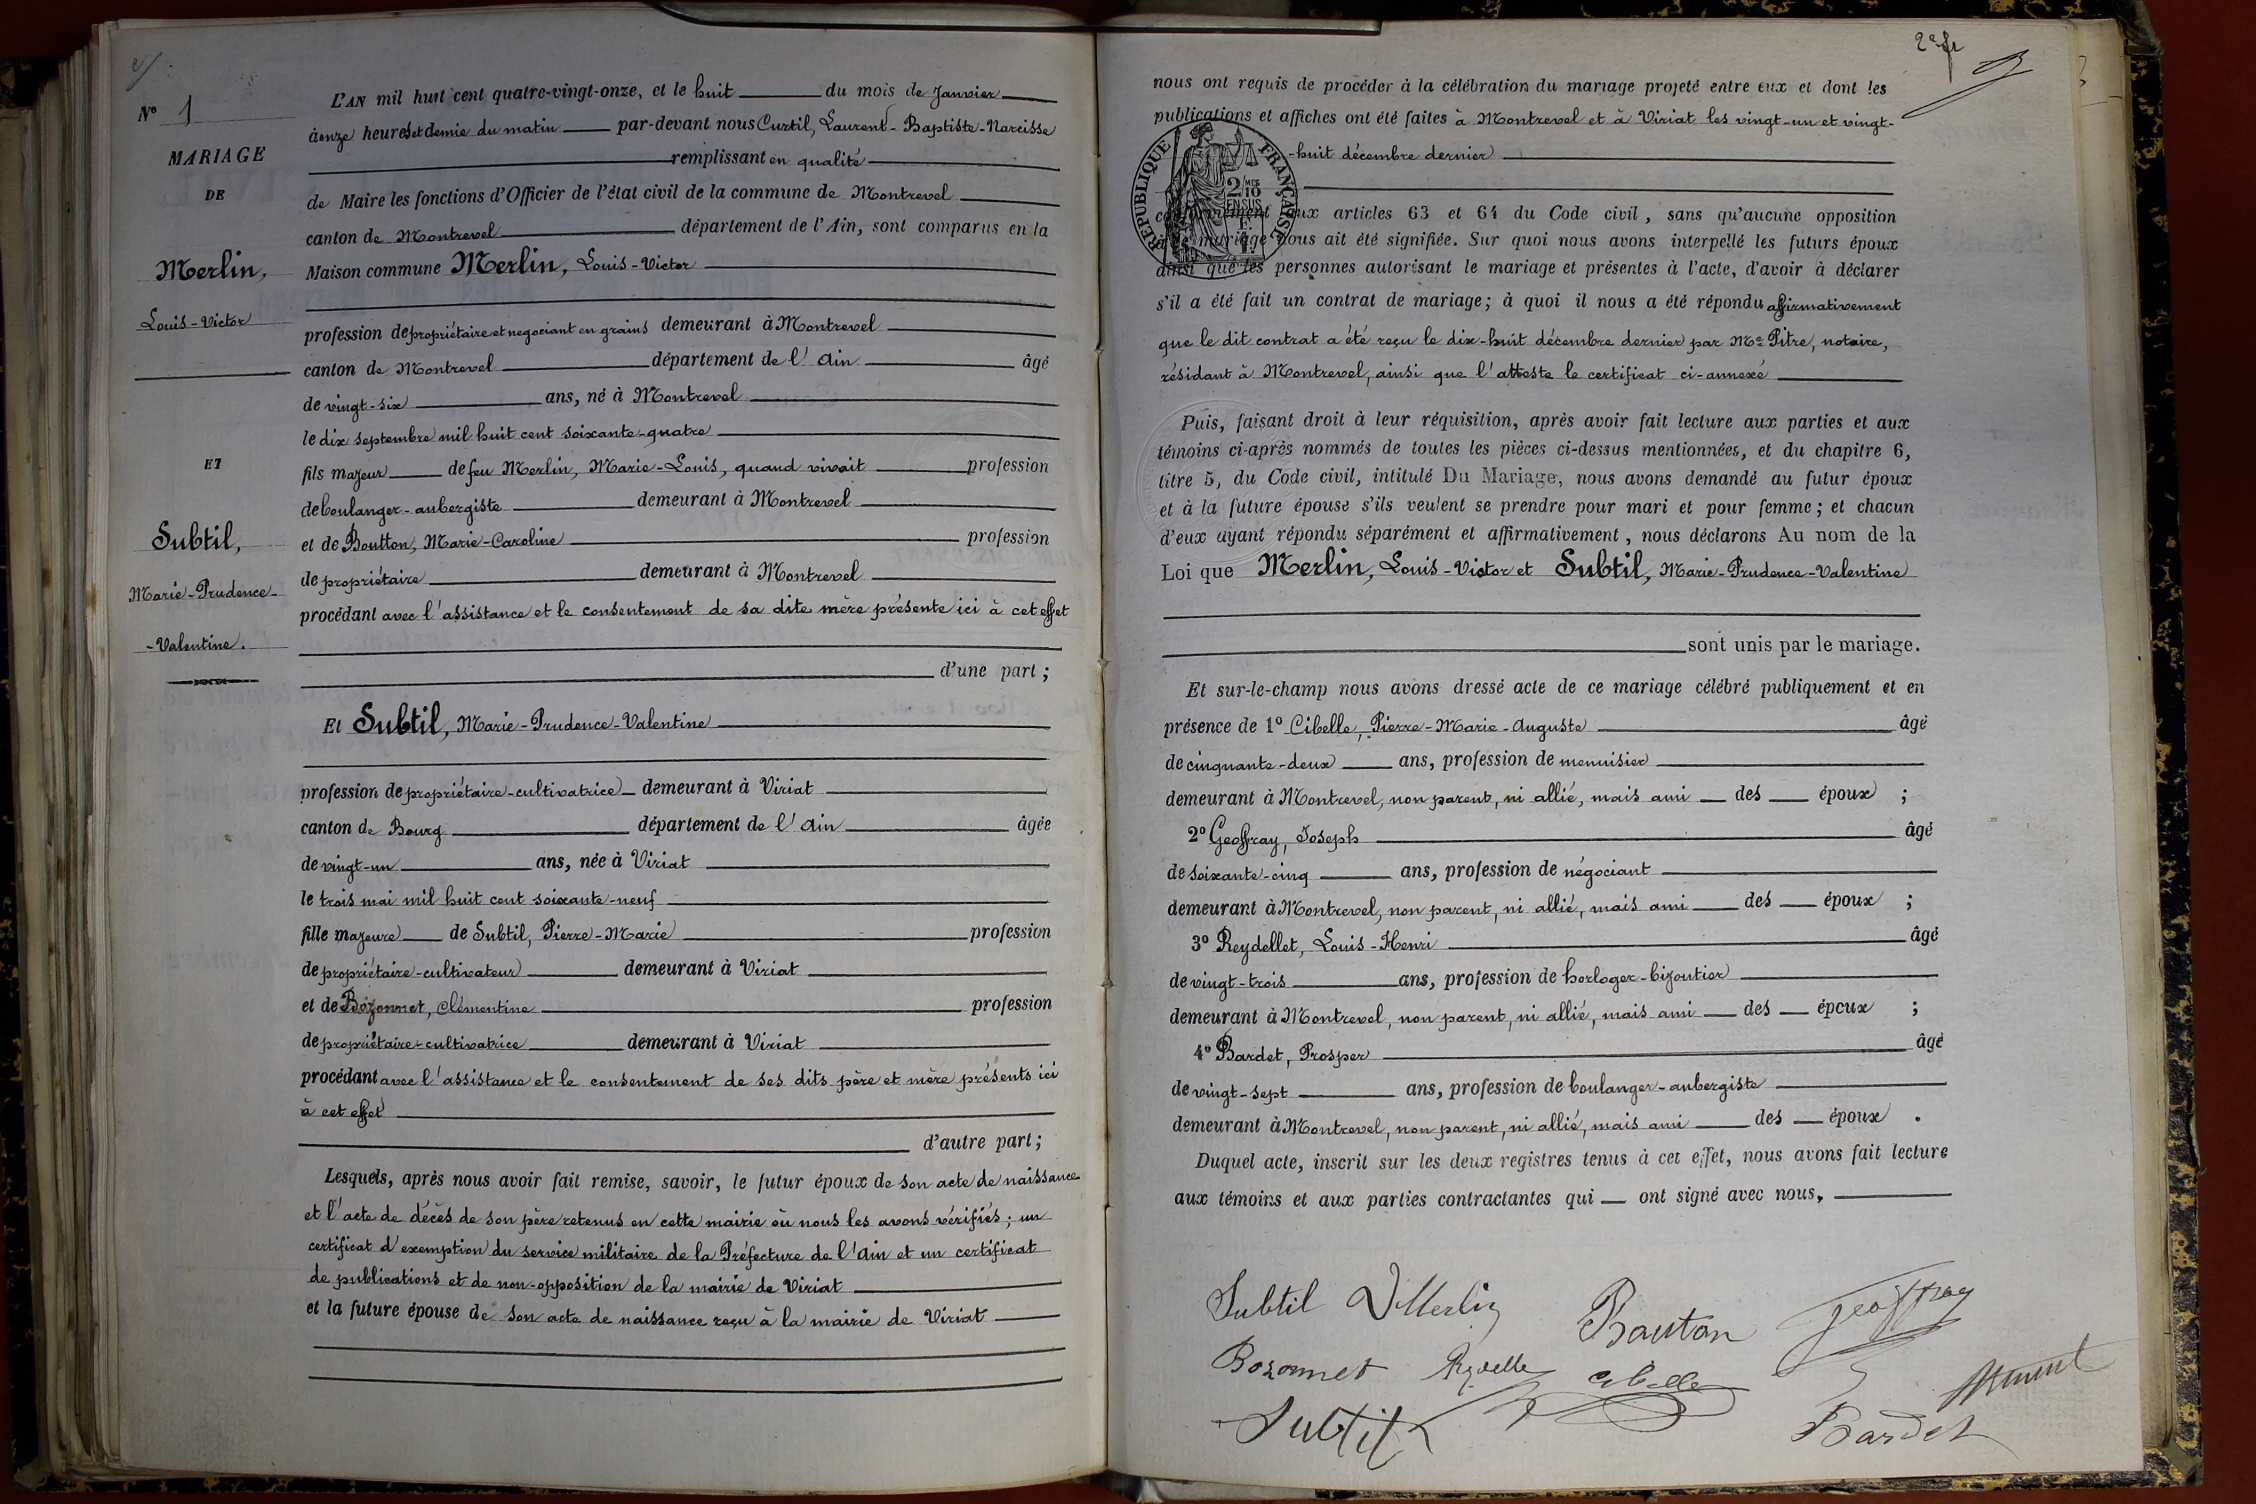 Nº 1
MARIAGE
DE
Merlin,
Louis-Victor
ET
Subtil,
Marie-Prudence-
-Valentine.
L'AN mil huit cent quatre-vingt-onze, et le huit du mois de Janvier
à onze heures et demie du matin par-devant nous Curtil, Laurent-Baptiste-Narcisse
remplissant en qualité
de Maire les fonctions d'Officier de l'état civil de la commune de Montrevel
canton de Montrevel département de l'Ain, sont comparus en la
Maison commune Merlin, Louis-Victor
profession de propriétaire et negociant en grains demeurant à Montrevel
canton de Montrevel département de l'Ain âgé
de vingt-six ans, né à Montrevel
le dix septembre mil huit cent soixante-quatre
fils majeur de feu Merlin, Marie-Louis, quand vivait profession
de boulanger-aubergiste demeurant à Montrevel
et de Boutton, Marie-Caroline profession
de propriétaire demeurant à Montrevel
procédant avec l'assistance et le consentement de sa dite mère présente ici à cet effet
d'une part ;
Et Subtil, Marie-Prudence-Valentine
profession de propriétaire-cultivatrice demeurant à Viriat
canton de Bourg département de l'Ain âgée
de vingt-un ans, née à Viriat
le trois mai mil huit cent soixante-neuf
fille majeure de Subtil, Pierre-Marie profession
de propriétaire-cultivateur demeurant à Viriat
et de Bozonnet, Clémentine profession
de propriétaire-cultivatrice demeurant à Viriat
procédant avec l'assistance et le consentement de ses dits père et mère présents ici
à cet effet
d'autre part ;
Lesquels, après nous avoir fait remise, savoir, le futur époux de son acte de naissance
et l'acte de décès de son père retenus en cette mairie où nous les avons vérifiés ; un
certificat d'exemption du service militaire de la Préfecture de l'Ain et un certificat
de publications et de non-opposition de la mairie de Viriat
et la future épouse de son acte de naissance reçu à la mairie de Viriat
nous ont requis de procéder à la célébration du mariage projeté entre eux et dont les
publications et affiches ont été faites à Montrevel et à Viriat les vingt-un et vingt-
-huit décembre dernier
RÉPUBLIQUE FRANÇAISE
2/10
EN SUS
conformément aux articles 63 et 64 du Code civil, sans qu'aucune opposition
mariage nous ait été signifiée. Sur quoi nous avons interpellé les futurs époux
ainsi que les personnes autorisant le mariage et présentes à l'acte, d'avoir à déclarer
s'il a été fait un contrat de mariage ; à quoi il nous a été répondu affirmativement
que le dit contrat a été reçu le dix-huit décembre dernier par Me Pitre, notaire,
résidant à Montrevel, ainsi que l'atteste le certificat ci-annexé
Puis, faisant droit à leur réquisition, après avoir fait lecture aux parties et aux
témoins ci-après nommés de toutes les pièces ci-dessus mentionnées, et du chapitre 6,
titre 5, du Code civil, intitulé Du Mariage, nous avons demandé au futur époux
et à la future épouse s'ils veulent se prendre pour mari et pour femme ; et chacun
d'eux ayant répondu séparément et affirmativement, nous déclarons Au nom de la
Loi que Merlin, Louis-Victor et Subtil, Marie-Prudence-Valentine
sont unis par le mariage.
Et sur-le-champ nous avons dressé acte de ce mariage célébré publiquement et en
présence de 1º Cibelle, Pierre-Marie-Auguste âgé
de cinquante-deux ans, profession de menuisier
demeurant à Montrevel, non parent, ni allié, mais ami des époux ;
2º Geoffray, Joseph âgé
de soixante-cinq ans, profession de négociant
demeurant à Montrevel, non parent, ni allié, mais ami des époux ;
3º Reydellet, Louis-Henri âgé
de vingt-trois ans, profession de horloger-bijoutier
demeurant à Montrevel, non parent, ni allié, mais ami des époux ;
4º Bardet, Prosper âgé
de vingt-sept ans, profession de boulanger-aubergiste
demeurant à Montrevel, non parent, ni allié, mais ami des époux .
Duquel acte, inscrit sur les deux registres tenus à cet effet, nous avons fait lecture
aux témoins et aux parties contractantes qui ont signé avec nous,
Subtil V Merlin Bouton Geoffray
Bozonnet Cibelle
Subtil Bardet